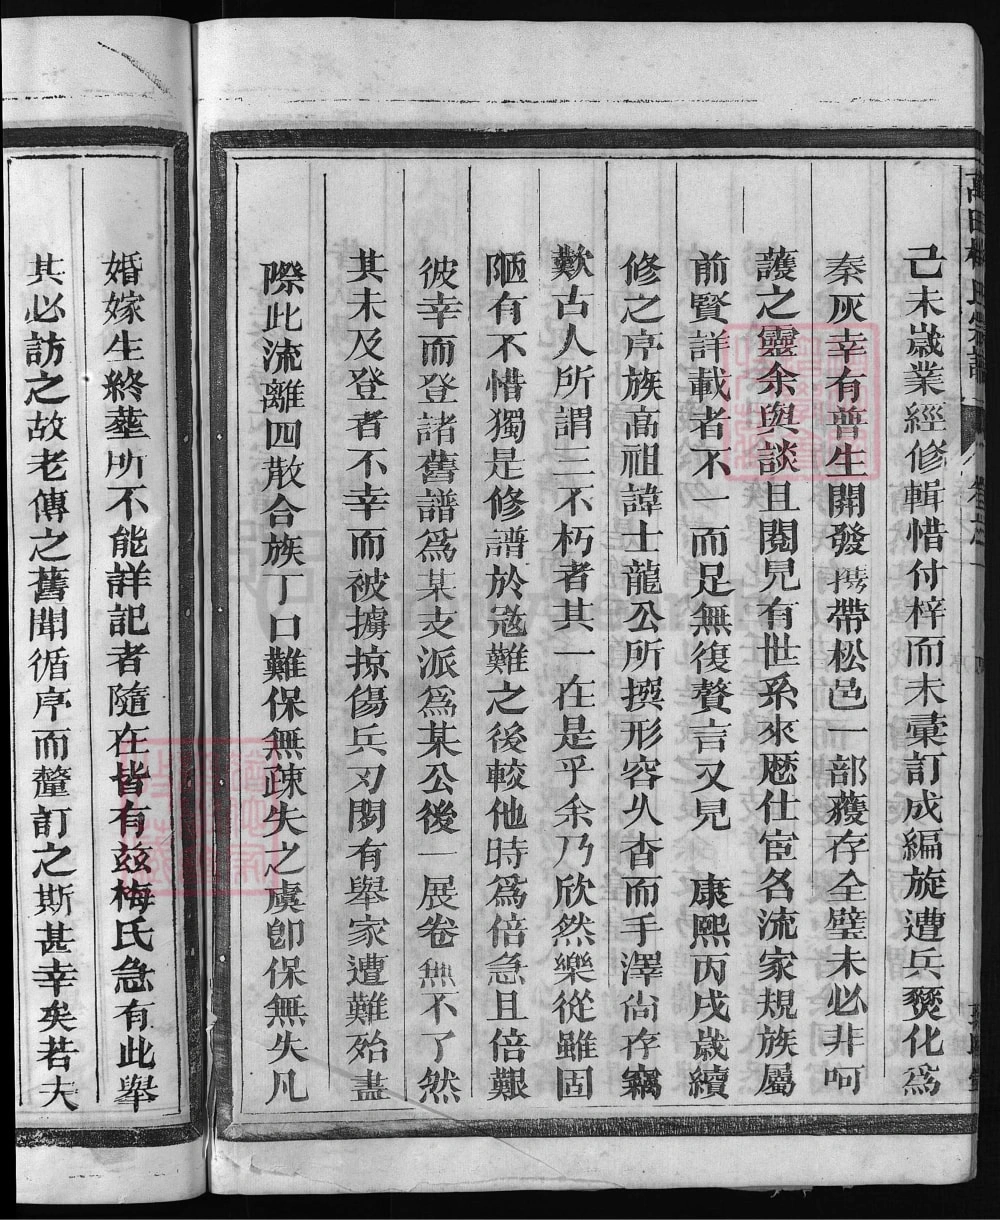 己未歲業經修輯惜付梓而未彙訂成編旋遭兵燹化為
秦灰幸有普生開發携帶松邑一部獲存全璧未必非呵
護之靈余與談且閱見有世系來歷仕宦名流家規族屬
前賢詳載者不一而足無復贅言又見 康熙丙戌歲續
修之序族高祖諱士龍公所撰形容久杳而手澤尚存竊
歎古人所謂三不朽者其一在是乎余乃欣然樂從雖固
陋有不惜獨是修譜於寇難之後較他時為倍急且倍艱
彼幸而登諸舊譜為某支派為某公後一展卷無不了然
其未及登者不幸而被擄掠傷兵刃閔有舉家遭難殆盡
際此流離四散合族丁口難保無疎失之虞卽保無失凡
婚嫁生終塟所不能詳記者隨在皆有茲梅氏急有此舉
其必訪之故老傳之舊聞循序而釐訂之斯甚幸矣若夫